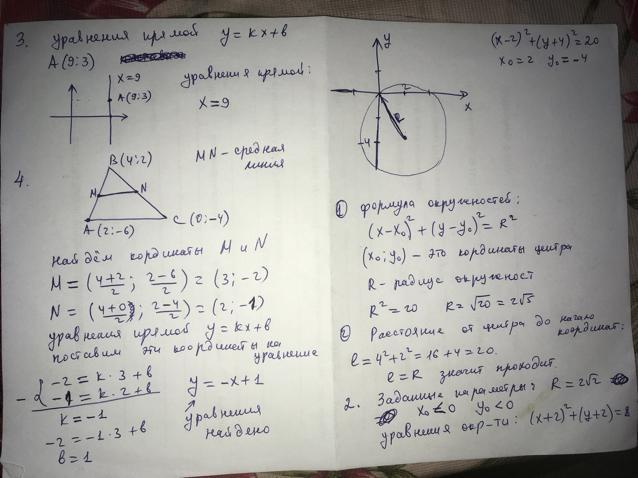 3. уравнения прямой y = kx+в
A(9;3)
x=9
A(9;3)
уравнения прямой:
x=9
4.
B(4;2)
MN - средная
линия
M
N
A(2;-6)
C(0;-4)
найдём кординаты M и N
M = (4+2/2; 2-6/2) = (3;-2)
N = (4+0/2; 2-4/2) = (2;-1)
уравнения прямой y = kx+в
поставим эти координаты на
уравнение
- { -2 = k·3+в
-1 = k·2+в
k = -1
-2 = -1·3+в
в = 1
y = -x+1
уравнения
найдено
(x-2)²+(y+4)²=20
x₀=2 y₀=-4
y
2
x
R
-4
① формула окружностей:
(x-x₀)²+(y-y₀)²=R²
(x₀;y₀) - это кординаты центра
R - радиус окружност
R²=20 R=√20=2√5
② Расстояние от центра до начало
координат:
l=4²+2²=16+4=20.
l=R значит проходит.
2. Заданные параметры: R=2√2
x₀<0 y₀<0
уравнения окр-ти: (x+2)²+(y+2)=8